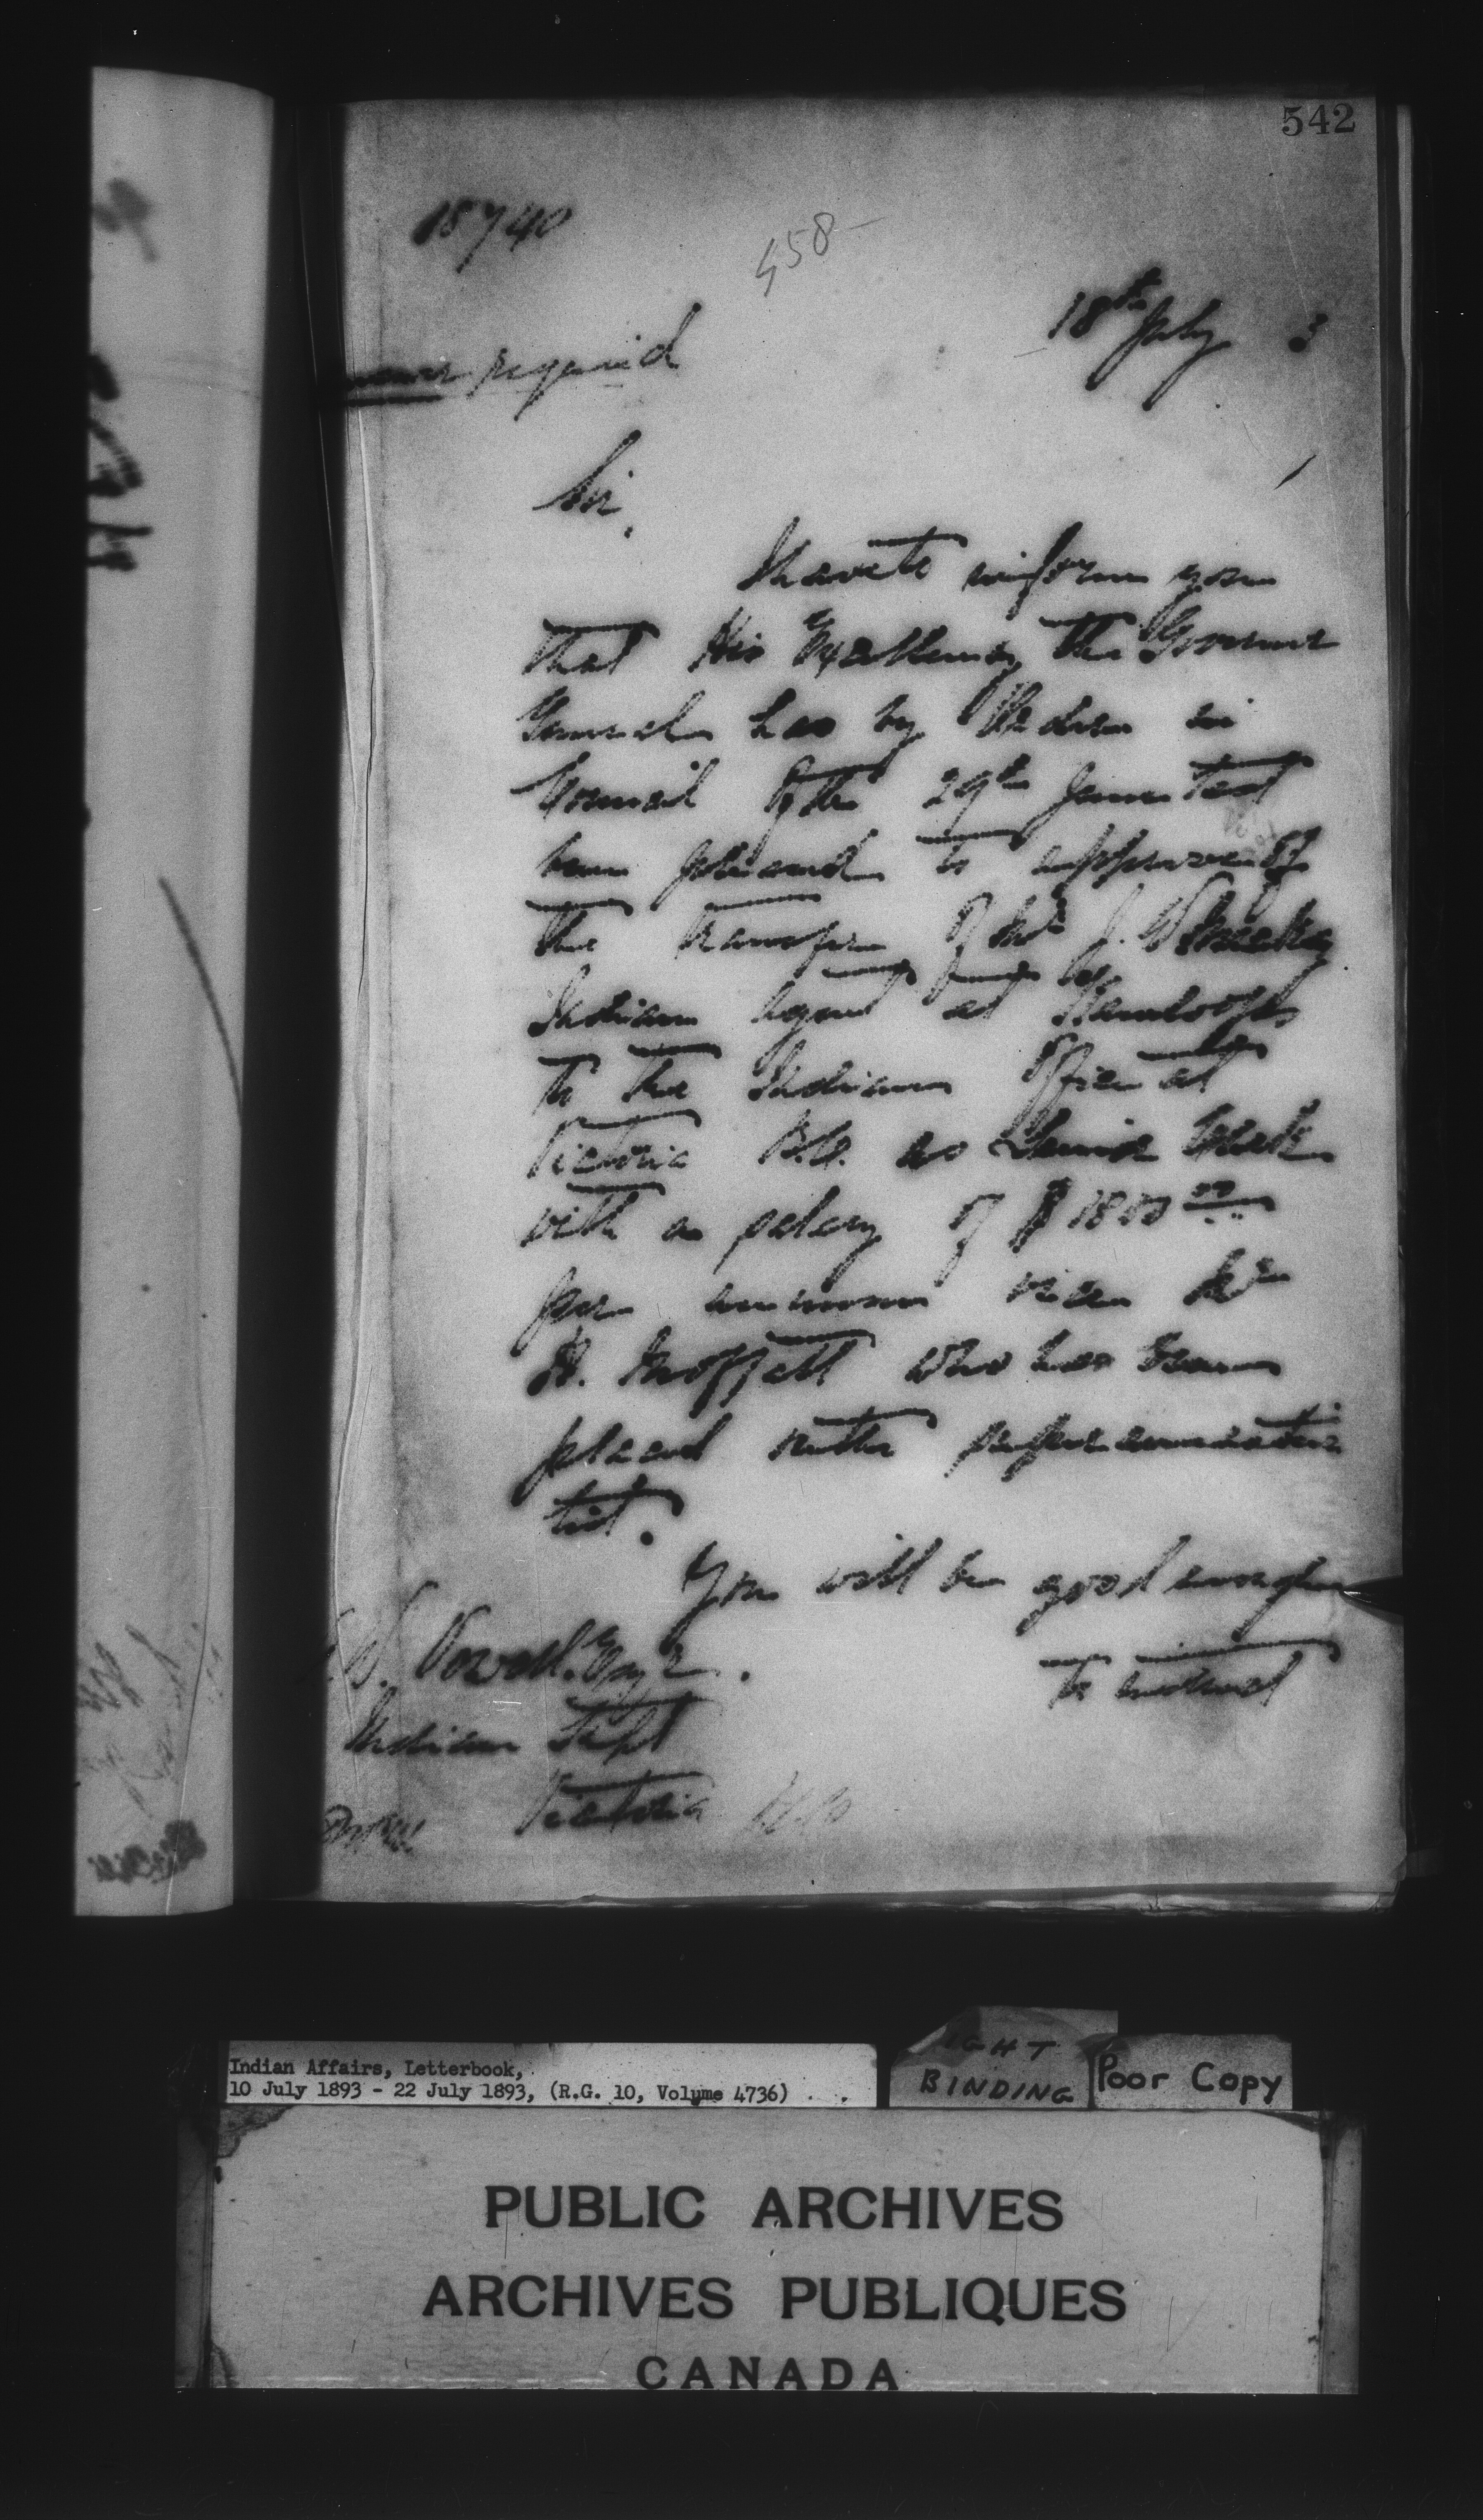 542
18740
458
18th July 3
required
Sir,
I have to inform you
that His Excellency the Governor
General has by Order in
Council of the 29th June last
been pleased to approve of
the transfer of Mr J. W. Mackay
Indian Agent at Kamloops
to the Indian Office at
Victoria B.C. as Senior Clerk
with a salary of $ 1800 00
per annum vice Mr
H. Moffatt who has been
placed on the superannuation
list.
You will be good enough
to instruct
Vowell. Esqre.
Indian Supt
Victoria B.C.
Indian Affairs, Letterbook,
10 July 1893 - 22 July 1893, (R.G. 10, Volume 4736)
IGHT
BINDING
Poor Copy
PUBLIC ARCHIVES
ARCHIVES PUBLIQUES
CANADA